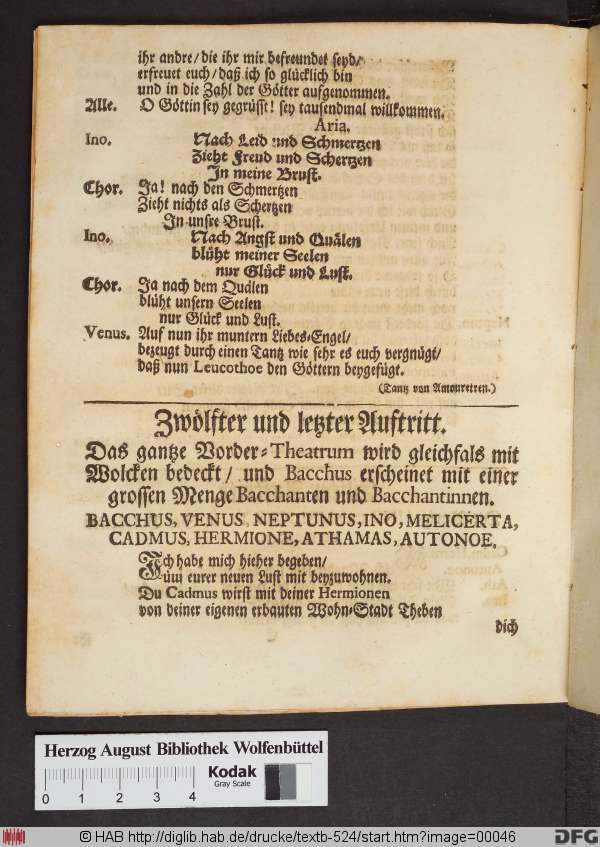 ihr andre/ die ihr mir befreundet seyd/
erfreuet euch/ daß ich so glücklich bin
und in die Zahl der Götter aufgenommen.
Alle. O Göttin sey gegrüsst! sey tausendmal willkommen.
Aria.
Ino. Nach Leid und Schmertzen
Zieht Freud und Schertzen
In meine Brust.
Chor. Ja! nach den Schmertzen
Zieht nichts als Schertzen
In unsre Brust.
Ino. Nach Angst und Quälen
blüht meiner Seelen
nur Glück und Lust.
Chor. Ja nach dem Quälen
blüht unsern Seelen
nur Glück und Lust.
Venus. Auf nun ihr muntern Liebes-Engel/
bezeugt durch einen Tantz wie sehr es euch vergnügt/
daß nun Leucothoe den Göttern beygefügt.
(Tantz von Amouretten.)
Zwölfter und letzter Auftritt.
Das gantze Vorder-Theatrum wird gleichfals mit
Wolcken bedeckt/ und Bacchus erscheinet mit einer
grossen Menge Bacchanten und Bacchantinnen.
BACCHUS, VENUS NEPTUNUS, INO, MELICERTA,
CADMUS, HERMIONE, ATHAMAS, AUTONOE.
Ich habe mich hieher begeben/
Um eurer neuen Lust mit beyzuwohnen.
Du Cadmus wirst mit deiner Hermionen
von deiner eigenen erbauten Wohn-Stadt Theben
dich
Herzog August Bibliothek Wolfenbüttel
Kodak
Gray Scale
0 1 2 3 4
© HAB http://diglib.hab.de/drucke/textb-524/start.htm?image=00046
DFG